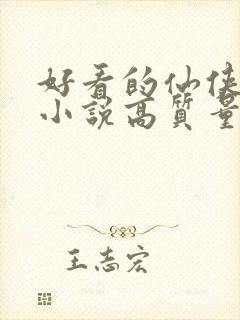 好看的仙侠
小说高质量
王志宏